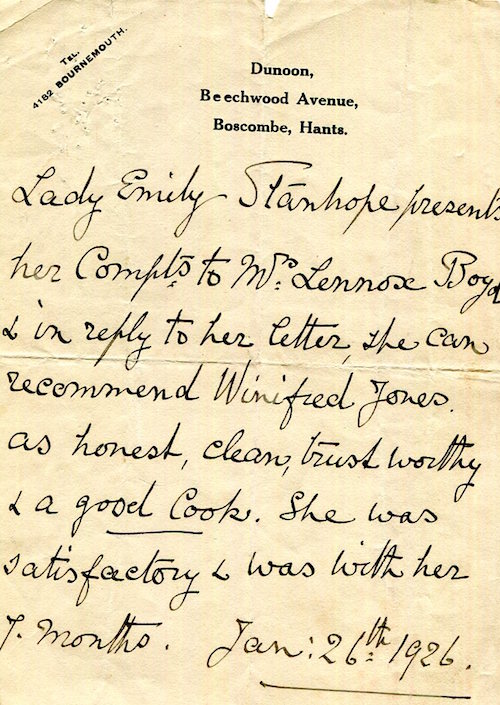 TEL.
4182 BOURNEMOUTH.
Dunoon,
Beechwood Avenue,
Boscombe, Hants.
Lady Emily Stanhope presents
her Compts to Mrs: Lennox Boyd
& in reply to her letter, she can
recommend Winifred Jones.
as honest, clean, trust worthy
& a good Cook. She was
satisfactory & was with her
7. Months. Jan: 26th 1926.